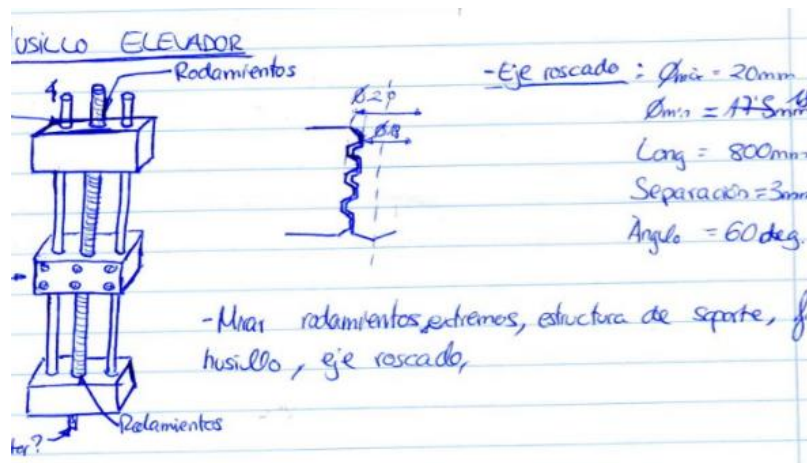 USILLO ELEVADOR
Rodamientos
-Eje roscado : Ømáx = 20mm
Ømin = 17'5mm
Long = 800mm
Separación = 3mm
Ángulo = 60 deg.
Ø20
Ø18
-Mirar rodamientos, extremos, estructura de soporte,
husillo, eje roscado,
Rodamientos